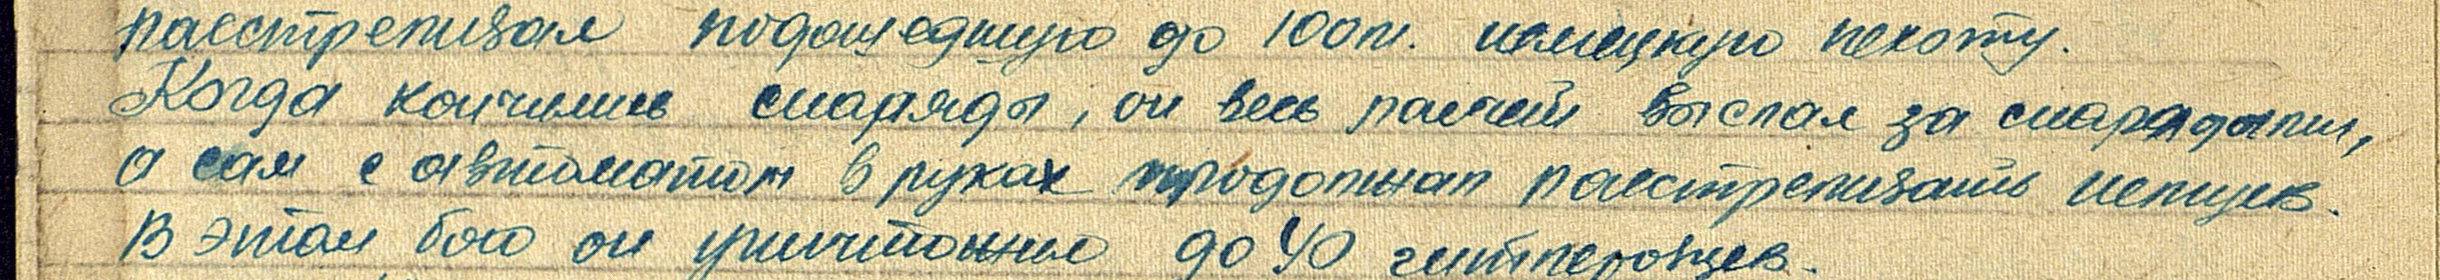 расстреливал подошедшую до 100 м. немецкую пехоту.
Когда кончились снаряды, он весь расчёт выслал за снарядами,
а сам с автоматом в руках продолжал расстреливать немцев.
В этом бою он уничтожил до 40 гитлеровцев.